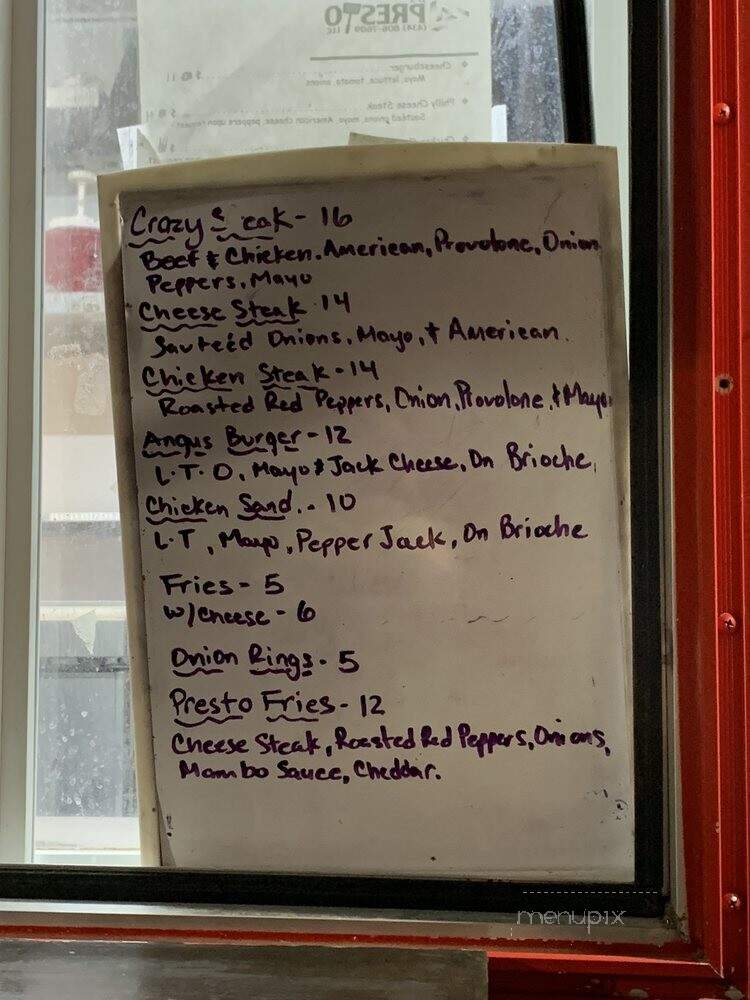 PRESTO
(434) 806-7609 LLC
Cheeseburger
Mayo, lettuce, tomato, onions
Philly Cheese Steak
Sautéed onions, mayo, American cheese, peppers upon request
Crazy S eak - 16
Beef & Chicken. American, Provolone, Onion
Peppers, Mayo
Cheese Steak 14
Sauteéd Onions, Mayo, & American.
Chicken Steak - 14
Roasted Red Peppers, Onion, Provolone, & Mayo
Angus Burger - 12
L.T.O, Mayo & Jack Cheese, On Brioche,
Chicken Sand. - 10
L.T, Mayo, Pepper Jack, On Brioche
Fries - 5
w/cheese - 6
Onion Rings - 5
Presto Fries - 12
Cheese Steak, Roasted Red Peppers, Onions,
Mambo Sauce, Cheddar.
menupix